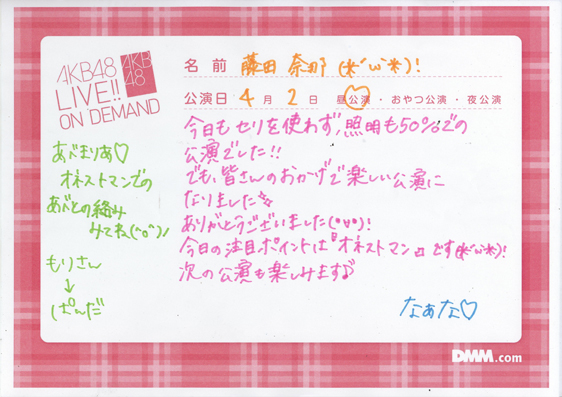 AKB48
LIVE!!
ON DEMAND
AKB
48
名 前 藤田 奈那 (*´ω`*)!
公演日 4 月 2 日 昼公演・おやつ公演・夜公演
今日もセリを使わず、照明も50%での
公演でした!!
でも、皆さんのおかげで楽しい公演に
なりました☆
ありがとうございました(°∀°)!
今日の注目ポイントは『オネストマン』です(*´ω`*)!
次の公演も楽しみます♪
なぁな♡
あべまりあ♡
オネストマンでの
あべとの絡み
みてね(^o^)ノ
もりさん
↓
ぱんだ
DMM.com